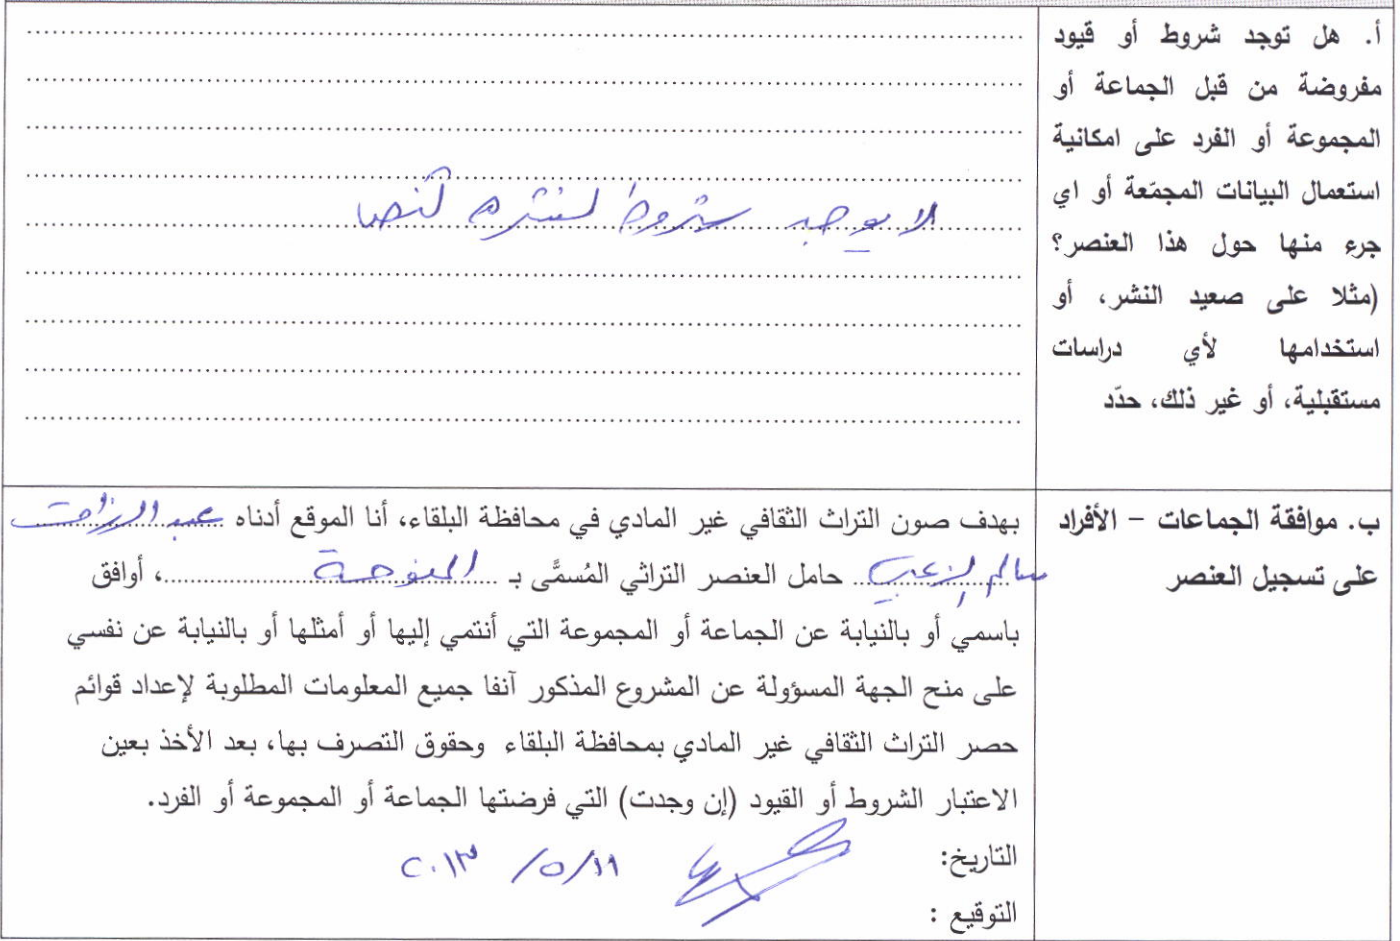 أ. هل توجد شروط أو قيود
مفروضة من قبل الجماعة أو
المجموعة أو الفرد على امكانية
استعمال البيانات المجمّعة أو اي
جرء منها حول هذا العنصر؟
(مثلا على صعيد النشر، أو
استخدامها لأي دراسات
مستقبلية، أو غير ذلك، حدّد
لا يوجد شروط لنشره
ب. موافقة الجماعات – الأفراد
على تسجيل العنصر
بهدف صون التراث الثقافي غير المادي في محافظة البلقاء، أنا الموقع أدناه عبد الرزاق
سالم الزعبي حامل العنصر التراثي المُسمَّى بـ، أوافق
باسمي أو بالنيابة عن الجماعة أو المجموعة التي أنتمي إليها أو أمثلها أو بالنيابة عن نفسي
على منح الجهة المسؤولة عن المشروع المذكور آنفا جميع المعلومات المطلوبة لإعداد قوائم
حصر التراث الثقافي غير المادي بمحافظة البلقاء وحقوق التصرف بها، بعد الأخذ بعين
الاعتبار الشروط أو القيود (إن وجدت) التي فرضتها الجماعة أو المجموعة أو الفرد.
التاريخ: ١١/٥/ ٢٠١٣
التوقيع :